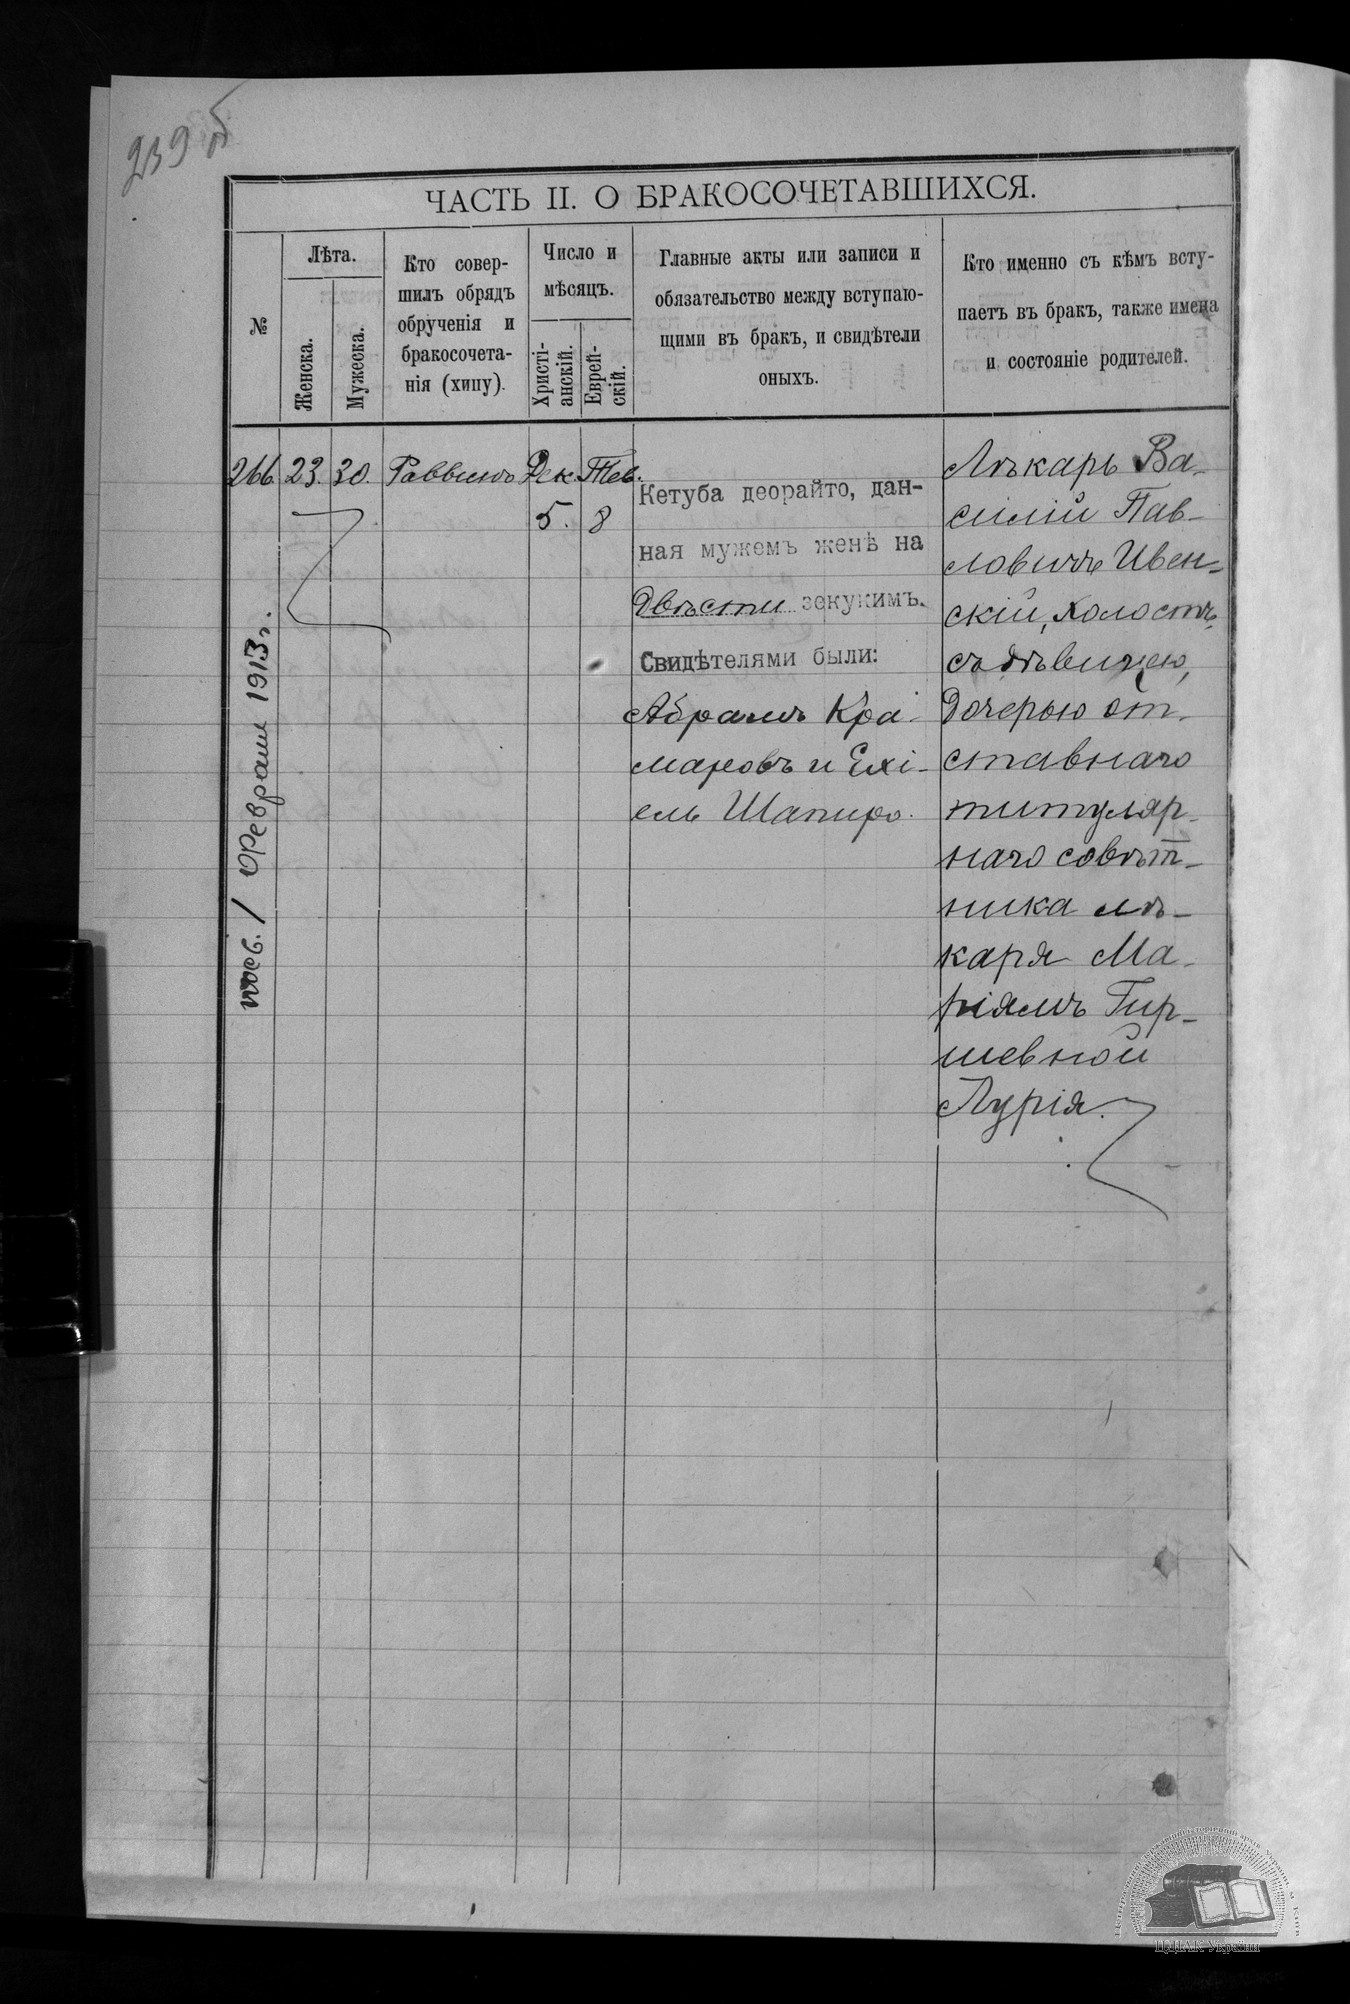 239 об
ЧАСТЬ II. О БРАКОСОЧЕТАВШИХСЯ.
№
Лѣта.
Женска.
Мужеска.
Кто совер-
шилъ обрядъ
обрученія и
бракосочета-
нія (хипу).
Число и
мѣсяцъ.
Христі-
анскій.
Еврей-
скій.
Главные акты или записи и
обязательство между вступаю-
щими въ бракъ, и свидѣтели
оныхъ.
Кто именно съ кѣмъ всту-
паетъ въ бракъ, также имена
и состояніе родителей.
266. 23. 30. Раввинъ Дек. Тев.
5. 8
Кетуба деорайто, дан-
ная мужемъ женѣ на
Двѣсти зекукимъ.
Свидѣтелями были:
Абрамъ Кра-
маровъ и Ехі-
ель Шапиро.
Лѣкарь Ва-
силій Пав-
ловичъ Ивен-
скій, холостъ,
съ дѣвицею,
Дочерью от-
ставнаго
титуляр-
наго совѣт-
ника лѣ-
каря Ма-
ріямъ Гир-
шевной
Лурія.
/ Февраля 1913 г.
ЦДІАК України